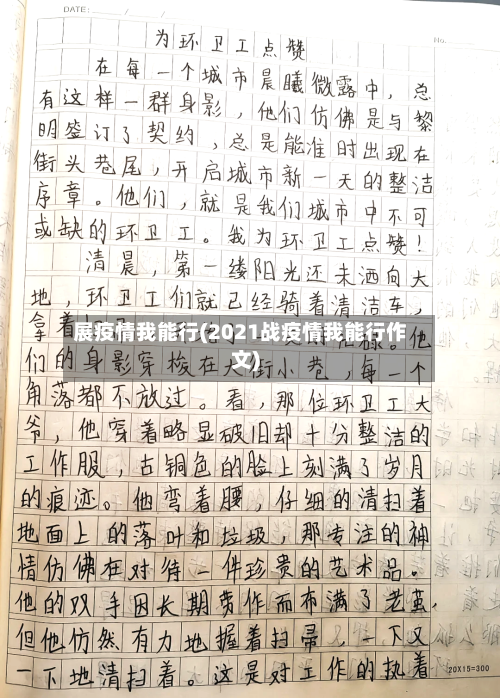 DATE: / /
No.
为环卫工点赞
在每一个城市晨曦微露中，总
有这样一群身影，他们仿佛是与黎
明签订了契约，总是能准时出现在
街头巷尾，开启城市新一天的整洁
序章。他们，就是我们城市中不可
或缺的环卫工。我为环卫工点赞！
清晨，第一缕阳光还未洒向大
地，环卫工们就已经骑着清洁车，
拿着
他
展疫情我能行(2021战疫情我能行作
文)
们的身影穿梭在大街小巷，每一个
角落都不放过。看，那位环卫工大
爷，他穿着略显破旧却十分整洁的
工作服，古铜色的脸上刻满了岁月
的痕迹。他弯着腰，仔细的清扫着
地面上的落叶和垃圾，那专注的神
情仿佛在对待一件珍贵的艺术品。
他的双手因长期劳作而布满了老茧，
但他仿然有力地握着扫帚，一下又
一下地清扫着。这是对工作的执着
20X15=300